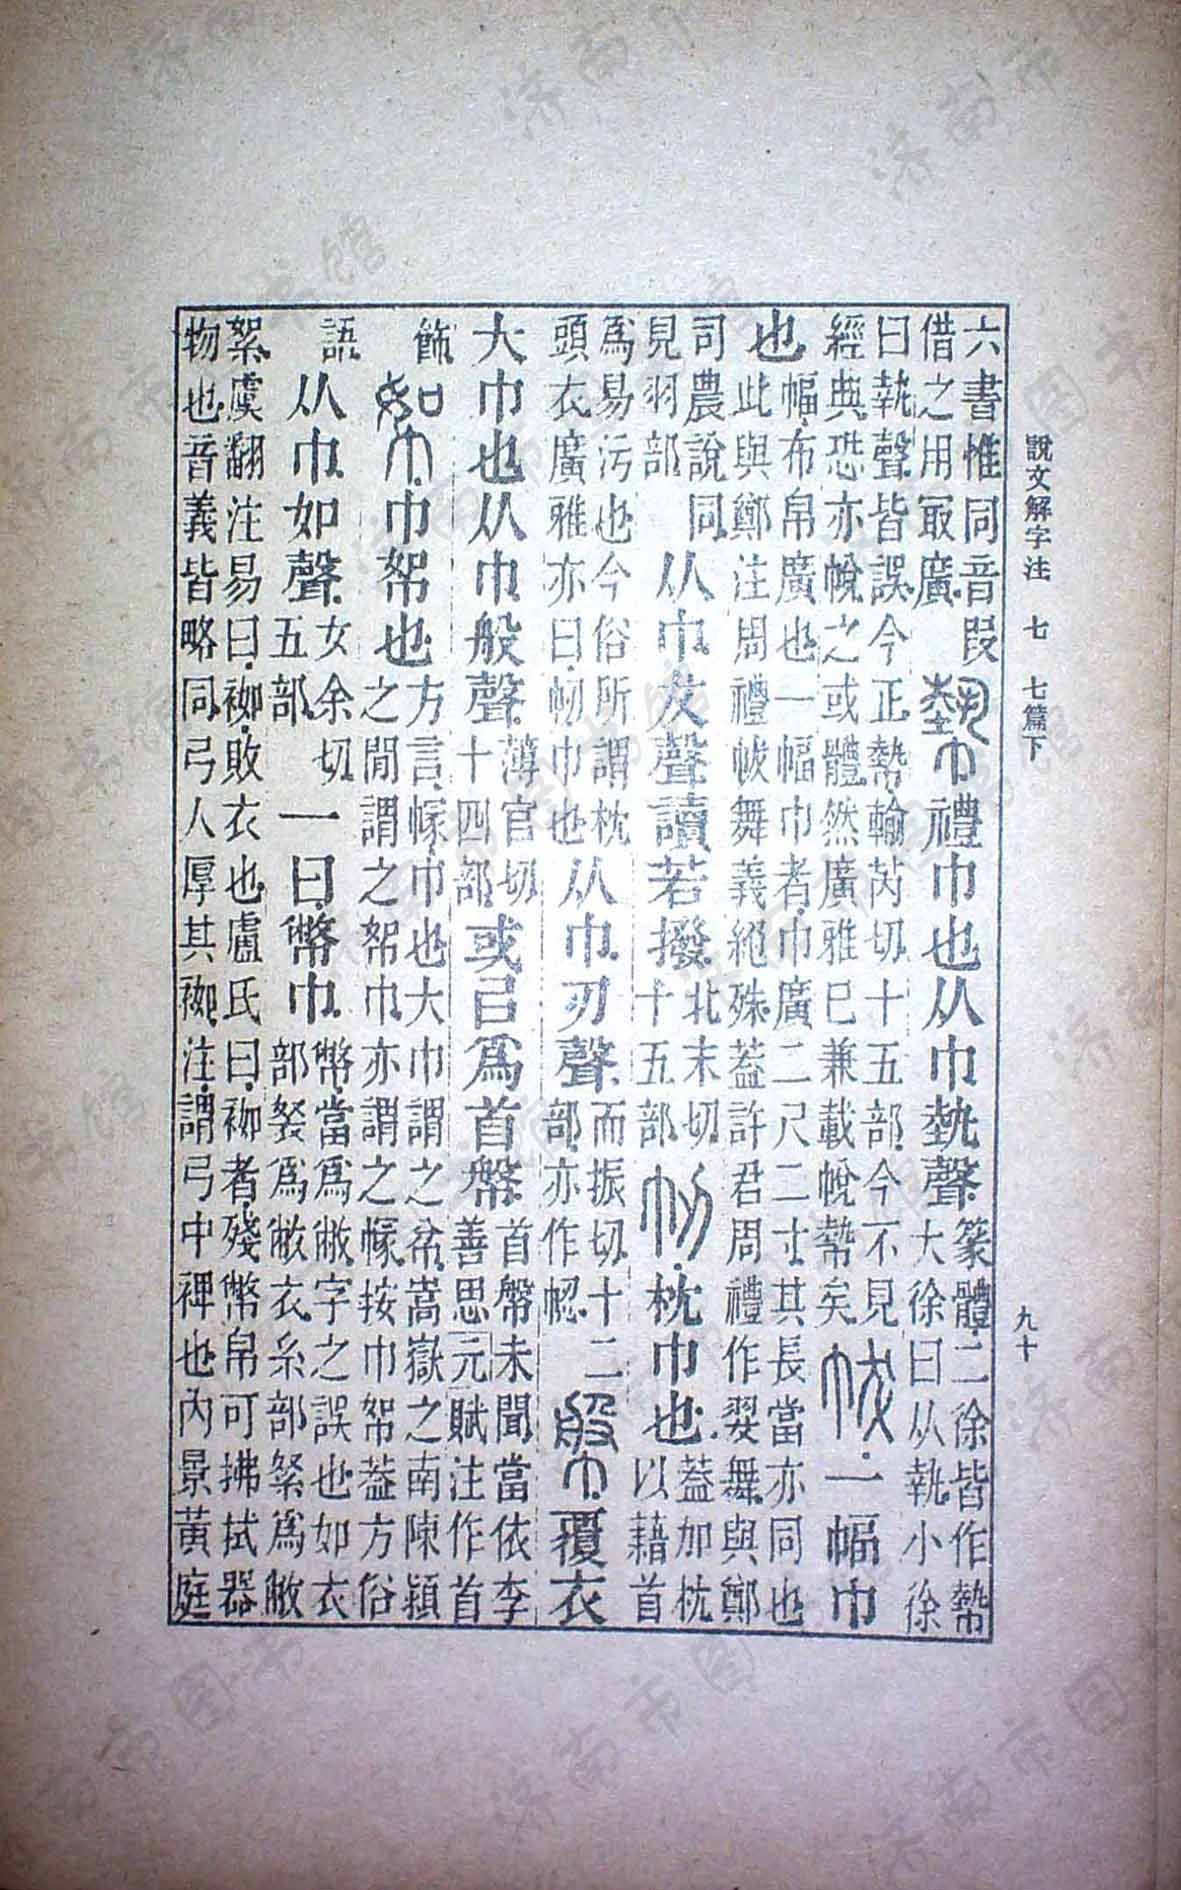 說文解字注 七 七篇下 九十
六書惟同音叚借之用㝡廣 𢄢 禮巾也从巾執聲 篆體二徐皆作㡘大徐曰从執小徐
曰執聲皆誤今正㡘輸芮切十五部今不見經典恐亦帨之或體然廣雅巳兼載帨㡘矣 帗 一幅巾
也 幅布帛廣也一幅巾者巾廣二尺二寸其長當亦同也此與鄭注周禮帗舞義絕殊葢許君周禮作翇舞與鄭
司農說同見羽部 从巾犮聲讀若撥 北末切十五部 㠴 枕巾也 葢加枕以藉首
爲易污也今俗所謂枕頭衣廣雅亦曰㠴巾也 从巾刃聲 而振切十二部亦作 幋 覆衣
大巾也从巾般聲 薄官切十四部 或㠯爲首幋 首幋未聞當依李善思元賦注作首
飾 帤 巾帤也 方言幏巾也大巾謂之㡋嵩嶽之南陳潁之閒謂之帤巾亦謂之幏按巾帤葢方俗
語 从巾如聲 女余切五部 一曰幣巾 幣當爲敝字之誤也如衣部袽爲敝衣糸部絮爲敝
絮虞翻注易曰袽敗衣也盧氏曰袽者殘幣帛可拂拭器物也音義皆略同弓人厚其袽注謂弓中裨也內景黃庭